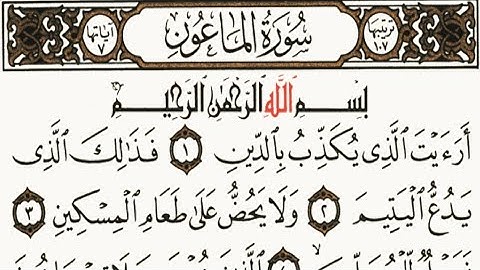 ترتيبها ١٠٧ سُورَةُ المَاعُونِ آياتها ٧
بِسْمِ ٱللَّهِ ٱلرَّحْمَٰنِ ٱلرَّحِيمِ
أَرَءَيْتَ ٱلَّذِى يُكَذِّبُ بِٱلدِّينِ ١ فَذَٰلِكَ ٱلَّذِى
يَدُعُّ ٱلْيَتِيمَ ٢ وَلَا يَحُضُّ عَلَىٰ طَعَامِ ٱلْمِسْكِينِ ٣